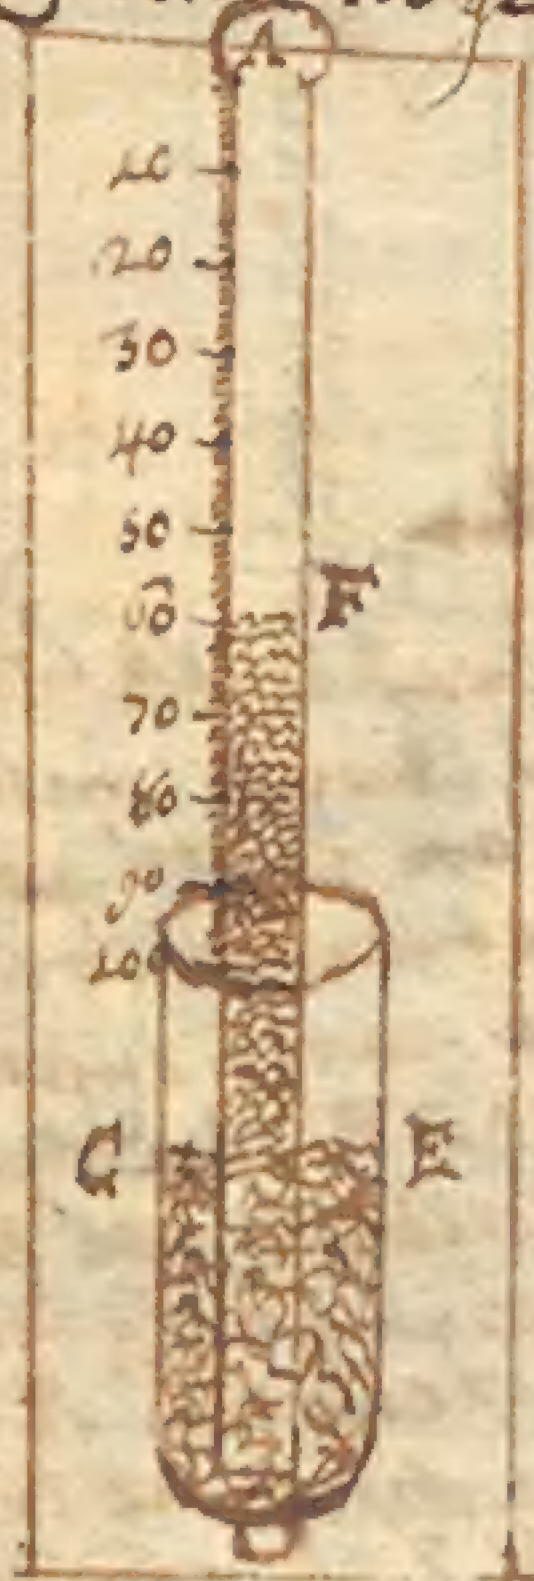 A
10
20
30
40
50
F
60
70
80
90
100
C
E